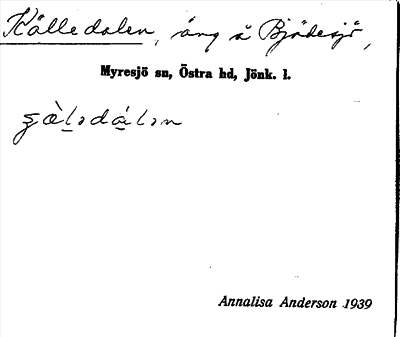 Källedalen, äng å Bjädesjö,
Myresjö sn, Östra hd, Jönk. l.
Annalisa Anderson 1939